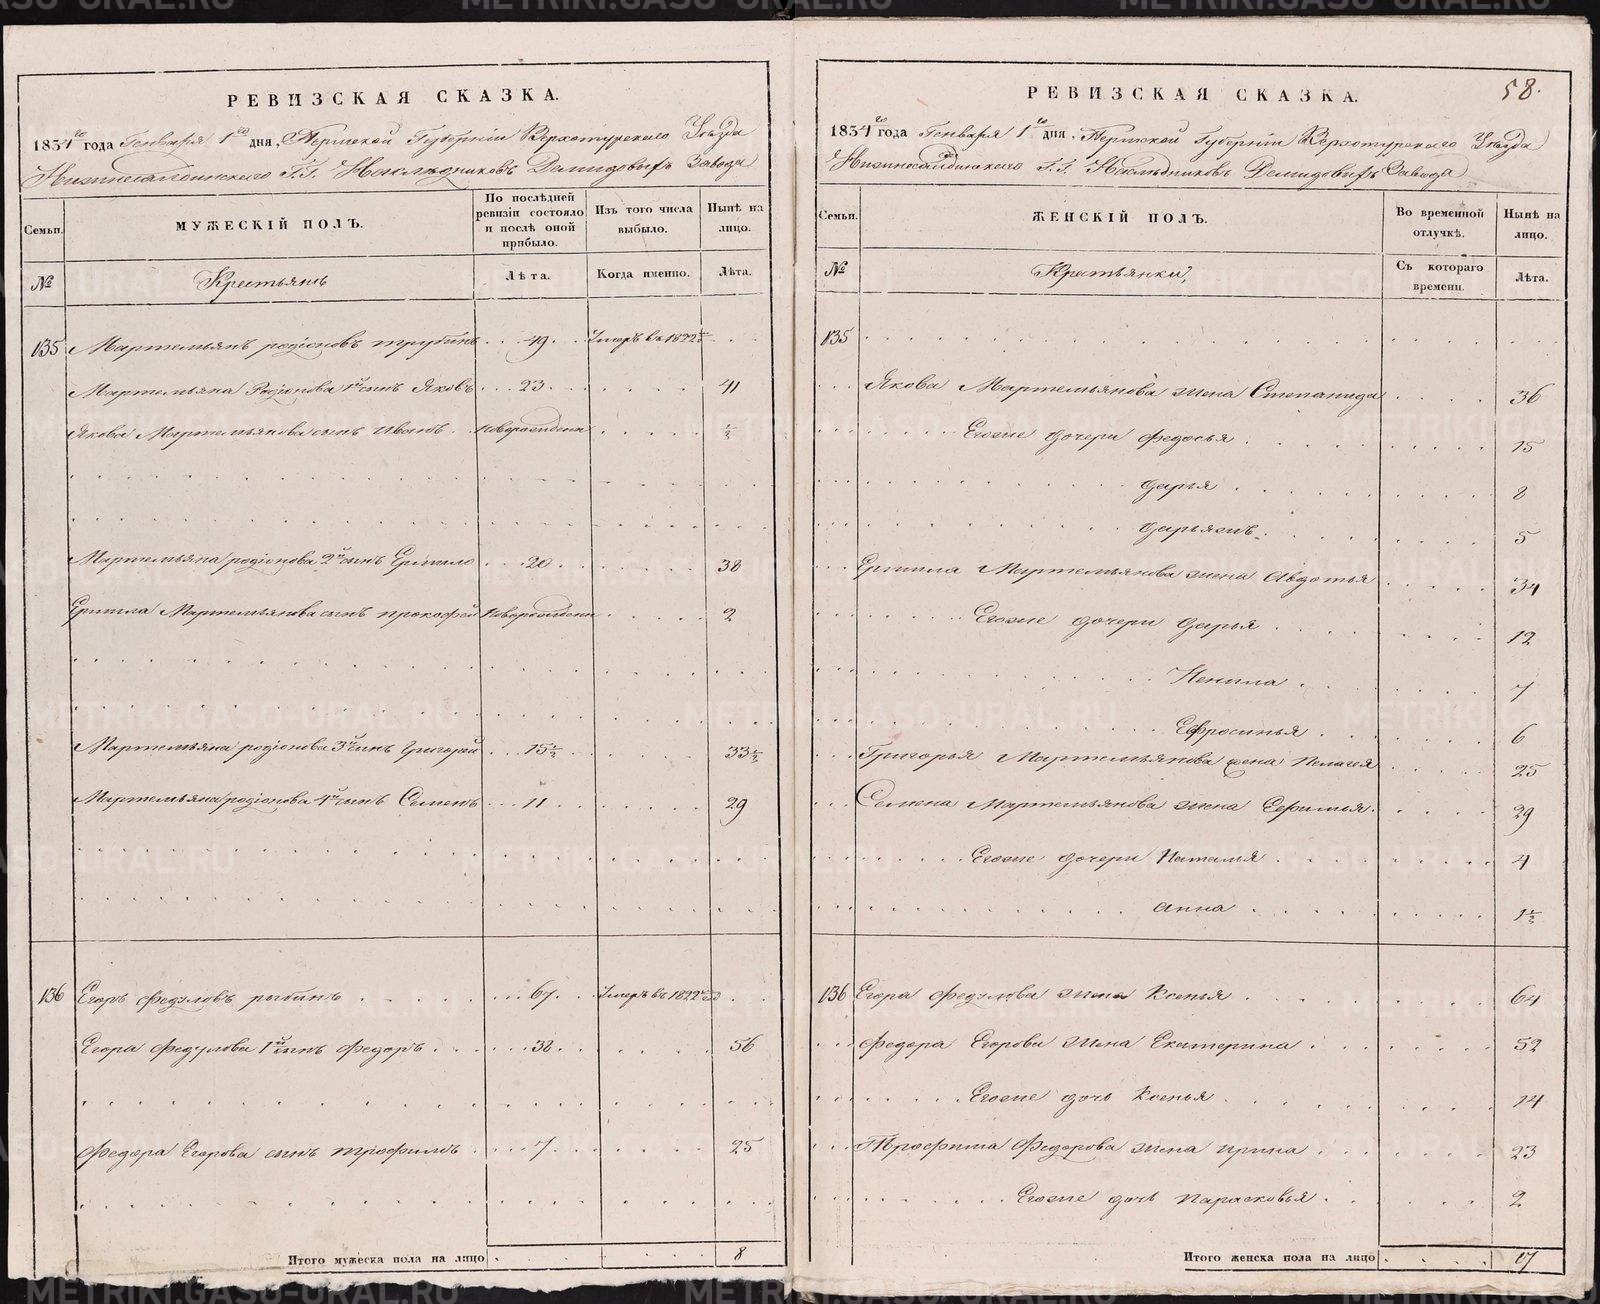 РЕВИЗСКАЯ СКАЗКА.
1834го года Генваря 1го дня, Пермской Губерніи Верхотурского Уѣзда
Нижнесалдинского Г.Г. Наслѣдниковъ Демидовыхъ Завода
Семьи. МУЖЕСКІЙ ПОЛЪ. По послѣдней ревизіи состояло и послѣ оной прибыло. Изъ того числа выбыло. Нынѣ на лицо.
№ Крестьянъ Лѣта. Когда именно. Лѣта.
135 Мартемьянъ родіоновъ трубинъ 49 Умеръ въ 1822
Мартемьяна Родіонова 1й сынъ Яковъ 23 41
Якова Мартемьянова сынъ Иванъ новорожденъ ½
Мартемьяна родіонова 2й сынъ Ермило 20 38
Ермила Мартемьянова сынъ прокофей новорожденъ 2
Мартемьяна родіонова 3й сынъ григорей 15½ 33½
Мартемьяна родіонова 4й сынъ Семенъ 11 29
136 Егоръ Федуловъ рыбинъ 67 Умеръ въ 1822
Егора Федулова 1й сынъ Федоръ 38 56
Федора Егорова сынъ трофимъ 7 25
Итого мужеска пола на лицо 8
58.
РЕВИЗСКАЯ СКАЗКА.
1834го года Генваря 1го дня, Пермской Губерніи Верхотурского Уѣзда
Нижнесалдинского Г.Г. Наслѣдниковъ Демидовыхъ Завода
Семьи. ЖЕНСКІЙ ПОЛЪ. Во временной отлучкѣ. Нынѣ на лицо.
№ Крестьянки, Съ котораго времени. Лѣта.
135
Якова Мартемьянова жена Степанида 36
Егоже дочери федосья 15
дарья 8
5
Ермила Мартемьянова жена Авдотья 34
Егоже дочери дарья 12
Ненила 7
Ефросинья 6
Григорья Мартемьянова жена Пелагея 25
Семена Мартемьянова жена Ефимья 29
Егоже дочери Наталья 4
анна 1½
136 Егора Федулова жена Ксенья 64
Федора Егорова жена Екатерина 52
Егоже дочь Ксенья 14
Трофима Федорова жена ирина 23
Егоже дочь парасковья 2
Итого женска пола на лицо 17
METRIKI.GASO-URAL.RU